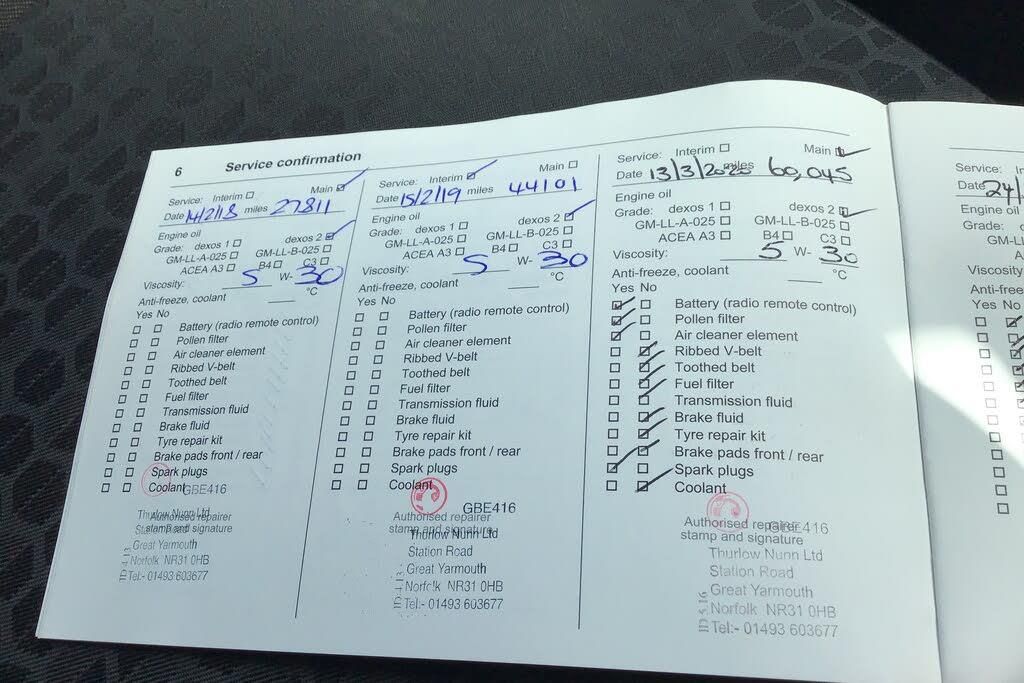 6 Service confirmation
Service: Interim Main
Date 14/2/18 miles 27811
Engine oil
Grade: dexos 1 dexos 2
GM-LL-A-025 GM-LL-B-025
ACEA A3 B4 C3
Viscosity: 5 W- 30
Anti-freeze, coolant °C
Yes No
Battery (radio remote control)
Pollen filter
Air cleaner element
Ribbed V-belt
Toothed belt
Fuel filter
Transmission fluid
Brake fluid
Tyre repair kit
Brake pads front / rear
Spark plugs
Coolant
GBE416
Authorised repairer
stamp and signature
Thurlow Nunn Ltd
Station Road
Great Yarmouth
Norfolk NR31 0HB
Tel:- 01493 603677
Service: Interim Main
Date 15/2/19 miles 44101
Engine oil
Grade: dexos 1 dexos 2
GM-LL-A-025 GM-LL-B-025
ACEA A3 B4 C3
Viscosity: 5 W- 30
Anti-freeze, coolant °C
Yes No
Battery (radio remote control)
Pollen filter
Air cleaner element
Ribbed V-belt
Toothed belt
Fuel filter
Transmission fluid
Brake fluid
Tyre repair kit
Brake pads front / rear
Spark plugs
Coolant
GBE416
Authorised repairer
stamp and signature
Thurlow Nunn Ltd
Station Road
Great Yarmouth
Norfolk NR31 0HB
Tel:- 01493 603677
Service: Interim Main
Date 13/3/2020 miles 60,045
Engine oil
Grade: dexos 1 dexos 2
GM-LL-A-025 GM-LL-B-025
ACEA A3 B4 C3
Viscosity: 5 W- 30
Anti-freeze, coolant °C
Yes No
Battery (radio remote control)
Pollen filter
Air cleaner element
Ribbed V-belt
Toothed belt
Fuel filter
Transmission fluid
Brake fluid
Tyre repair kit
Brake pads front / rear
Spark plugs
Coolant
GBE416
Authorised repairer
stamp and signature
Thurlow Nunn Ltd
Station Road
Great Yarmouth
Norfolk NR31 0HB
Tel:- 01493 603677
Service:
Date 24/
Engine oil
Grade:
GM-L
ACE
Viscosity:
Anti-free
Yes No